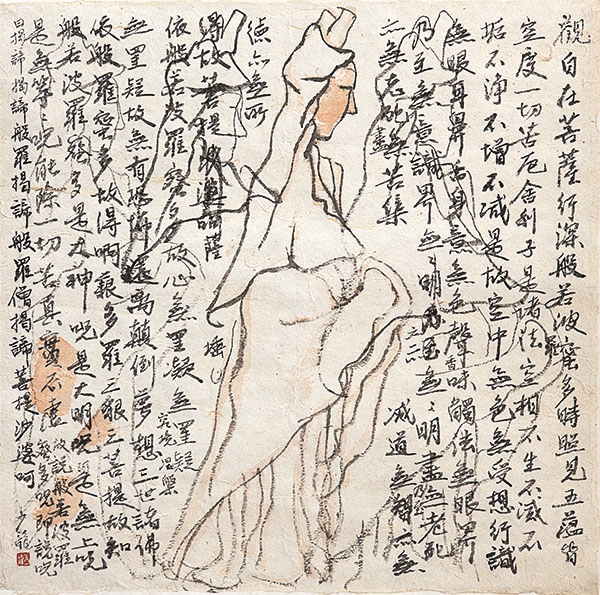 觀自在菩薩行深般若波蜜多時照見五蘊皆
空度一切苦厄舍利子是諸法空相不生不滅不
垢不淨不增不减是故空中無色無受想行識
無眼耳鼻舌身意無色聲香味觸法無眼界
乃至無意識界無明無明盡無老死
亦無老死盡無苦集滅道無智亦無
德亦無所
得故菩提薩
依般若波羅蜜多故心無罣礙無罣疑
究竟涅槃
無罣疑故無有恐怖遠离顛倒夢想三世諸佛
依般羅蜜多故得啊藐多羅三藐三菩提故知
般若波羅蜜多是大神呪是大明呪是無上呪
是無等呪能除一切苦真實不虛
故說般若波羅
蜜多呪即說呪
曰揭諦揭諦般羅揭諦般羅僧揭諦菩提沙婆呵